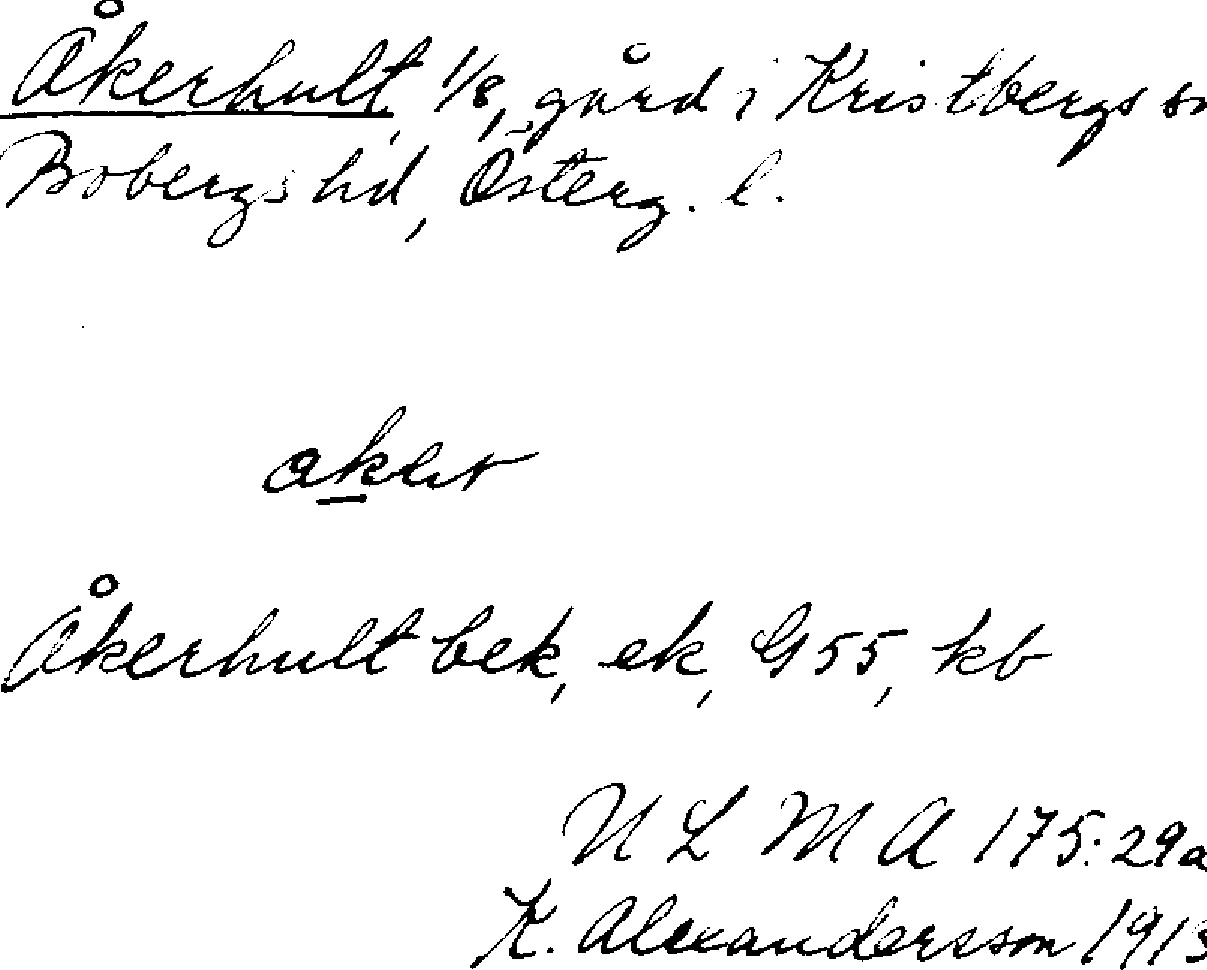 Åkerhult, 1/8, gård i Kristbergs sn
Bobergs hd, Österg. l.
Åkerhult bek, ek, G 55, kb
ULMA 175:29a
K. Alexandersson 1913